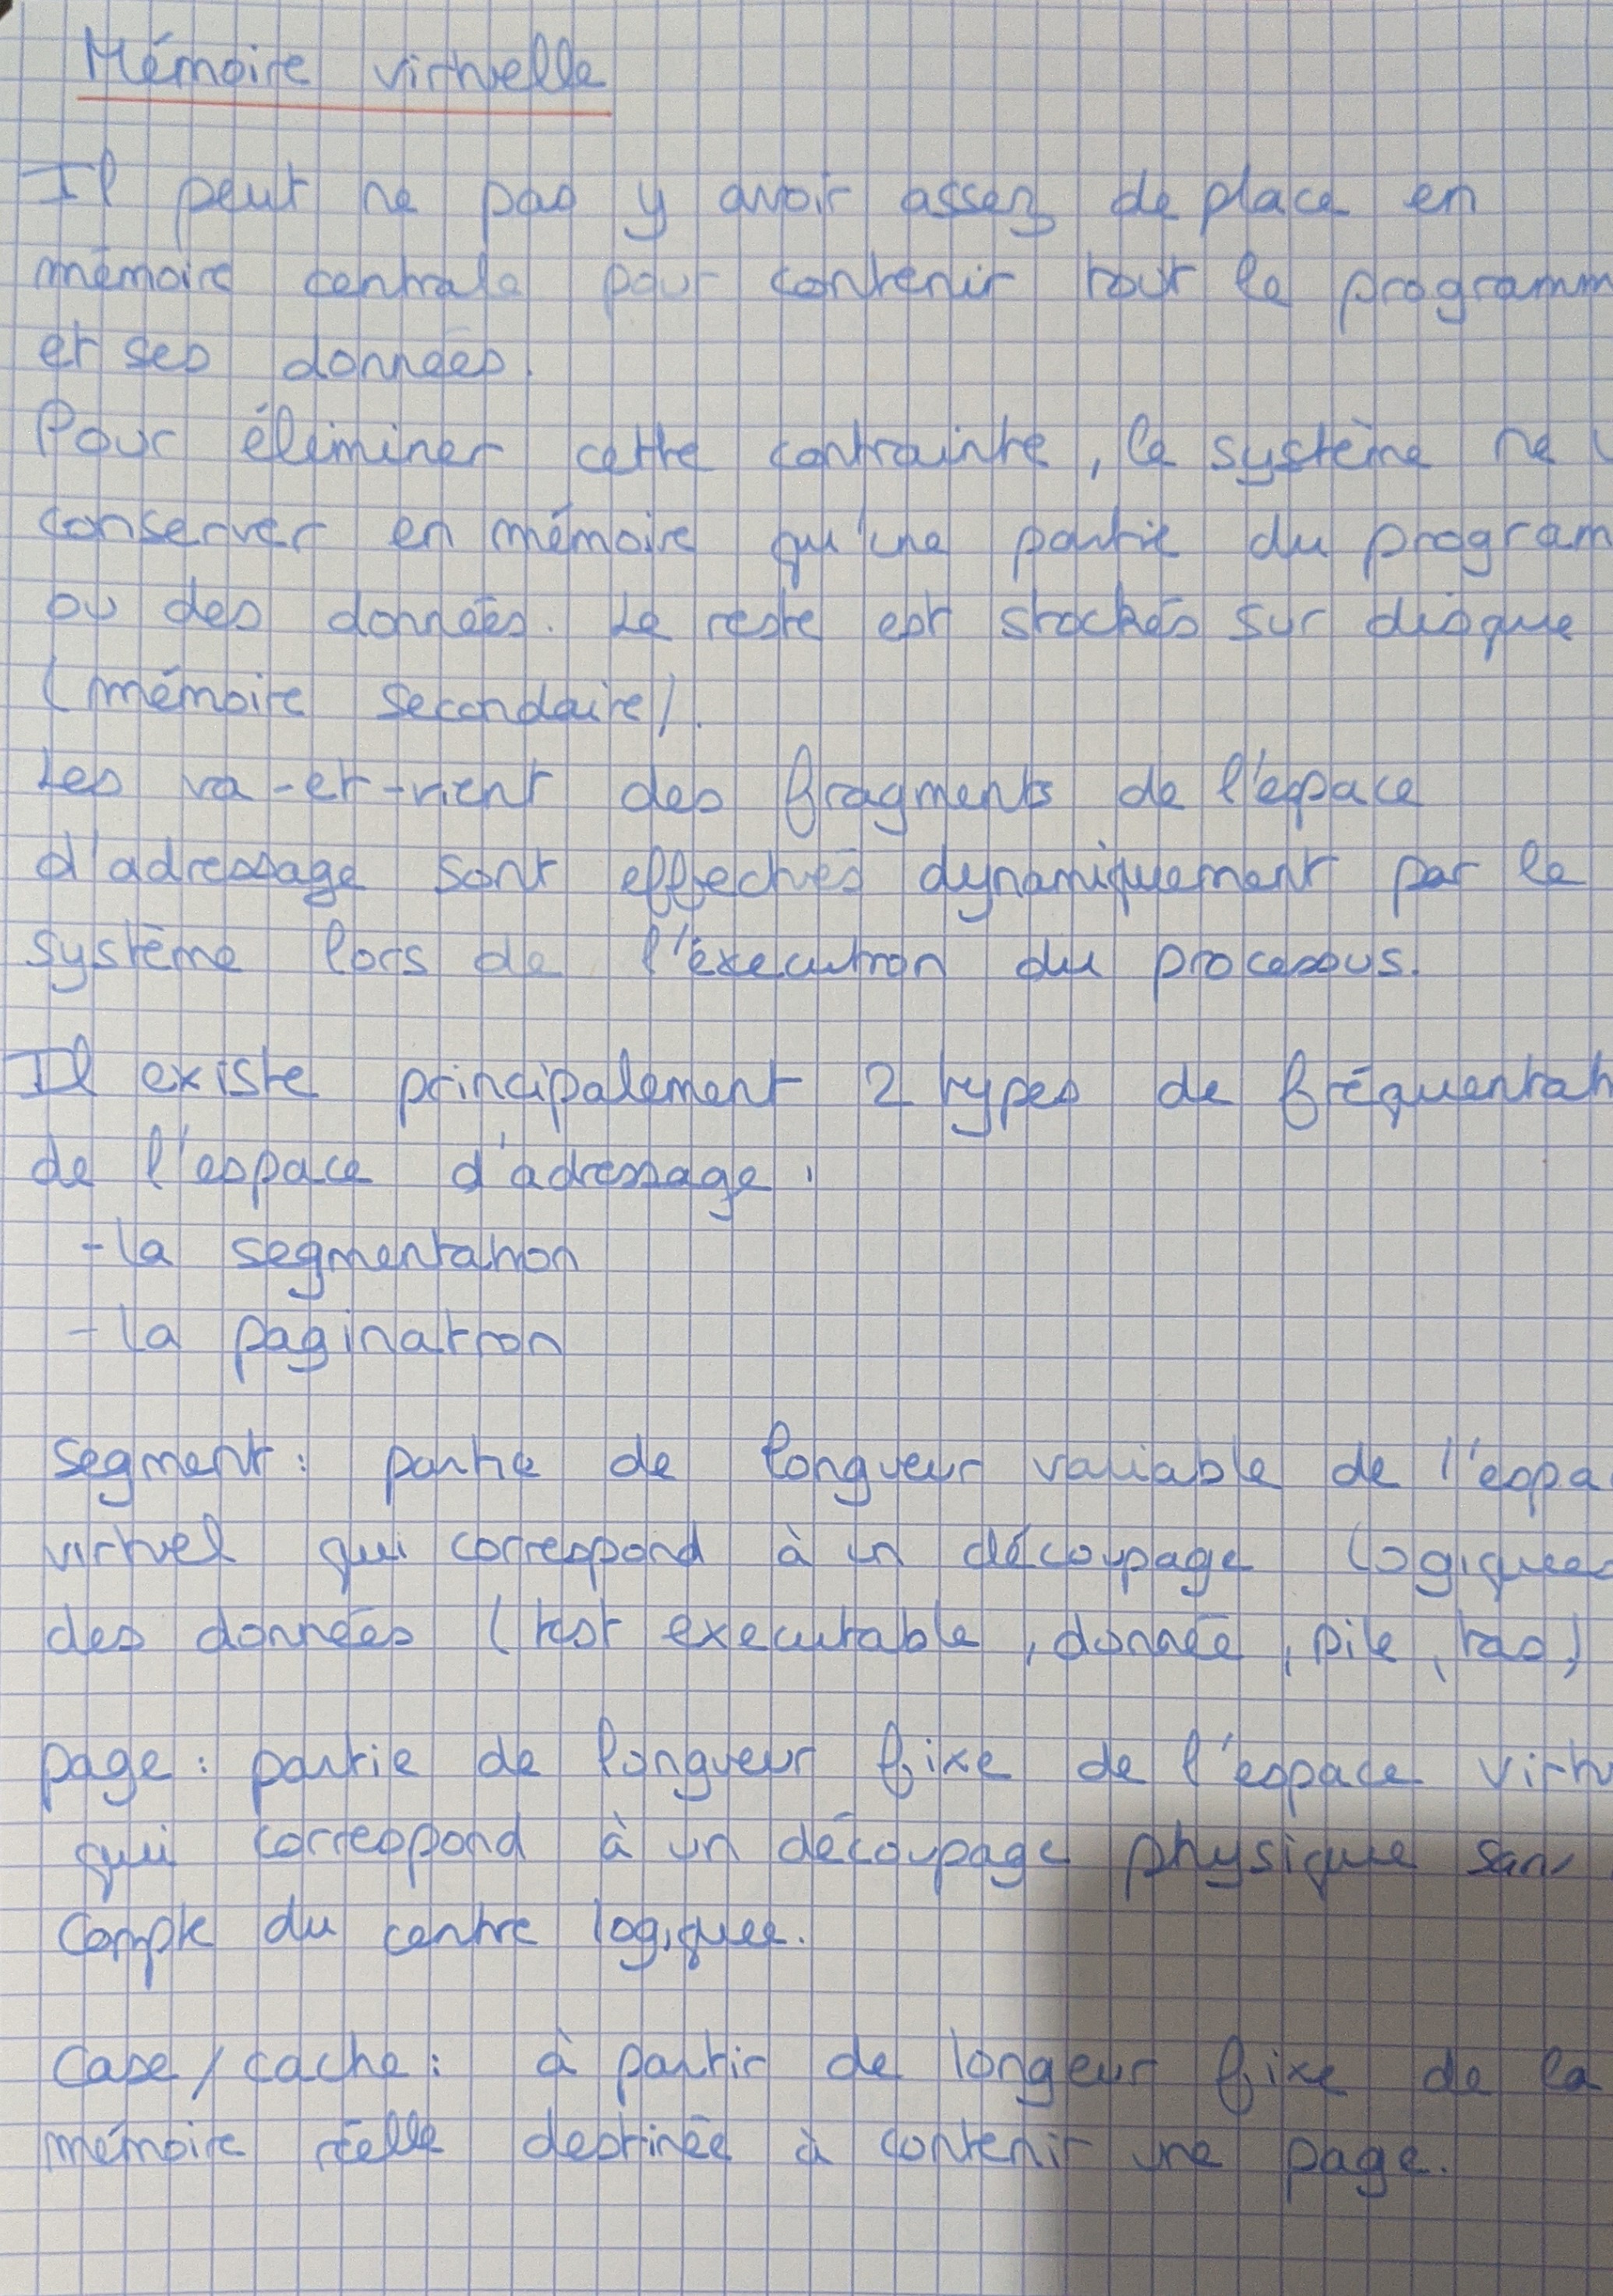 Mémoire virtuelle
Il peut ne pas y avoir assez de place en
mémoire centrale pour contenir tout le programm
et ses données.
Pour éléminer cette contrainte, le système ne
conserver en mémoire qu'une partie du program
ou des données. Le reste est stockés sur disque
(mémoire secondaire).
Les va-et-vient des fragments de l'espace
d'adressage sont effectués dynamiquement par le
système lors de l'éxecution du processus.
Il existe principalement 2 types de fréquentati
de l'espace d'adressage :
- la segmentation
- la pagination
segment : partie de longueur variable de l'espa
virtuel qui correspond à un découpage logiques
des données (test executable, donnée, pile, tas)
page : partie de longueur fixe de l'espace virtu
qui correspond à un découpage physique sans
compte du centre logique.
Case/cache : à partir de longeur fixe de la
mémoire réelle destinée à contenir une page.